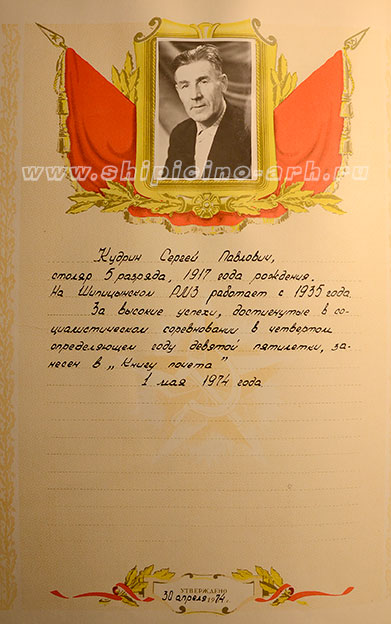 www.shipicino-arh.ru
Кудрин Сергей Павлович,
столяр 5 разряда, 1917 года рождения.
На Шипицынском РМЗ работает с 1935 года.
За высокие успехи, достигнутые в со-
циалистическом соревновании в четвертом
определяющем году девятой пятилетки, за-
несен в „Книгу почета"
1 мая 1974 года
УТВЕРЖДЕНО
30 апреля 1974г.